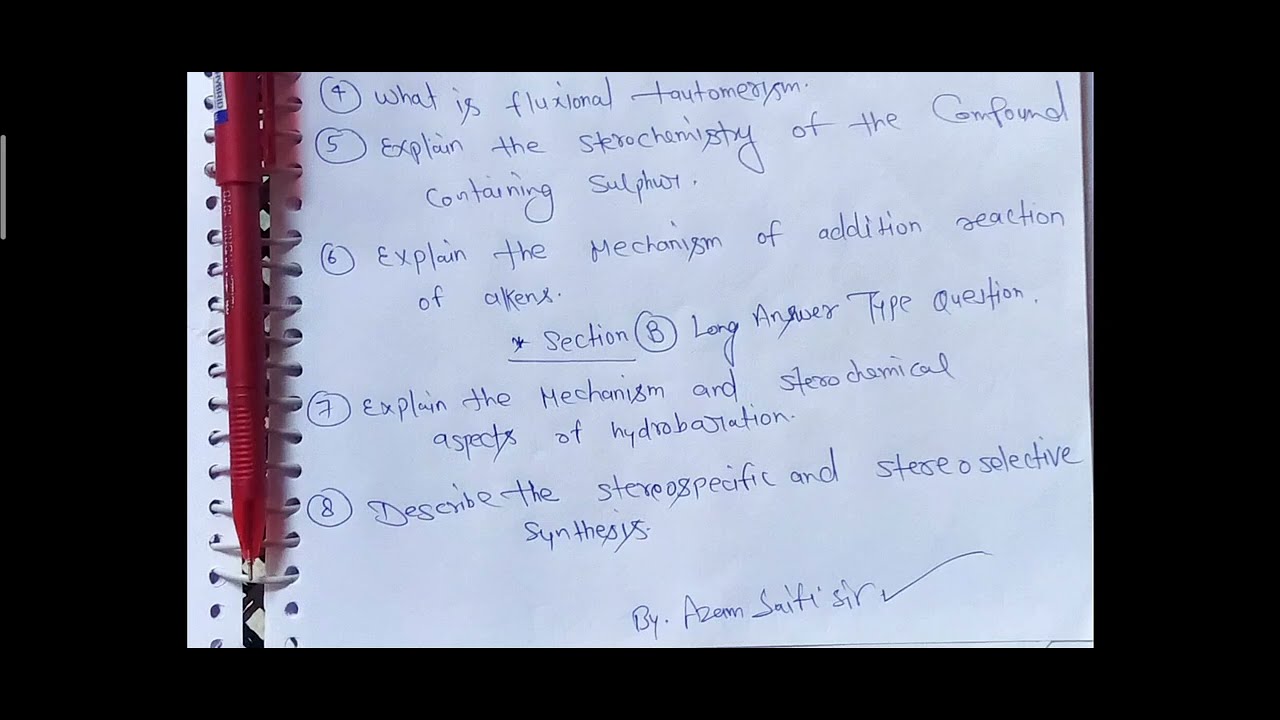 ④ What is fluxional tautomerism.
⑤ Explain the sterochemistry of the Compound
Containing Sulphur.
⑥ Explain the Mechanism of addition reaction
of alkens.
* Section Ⓑ Long Answer Type Question.
⑦ Explain the Mechanism and sterochemical
aspects of hydrobaration.
⑧ Describe the stereospecific and stereoselective
Synthesis.
By. Azam Saifi sir